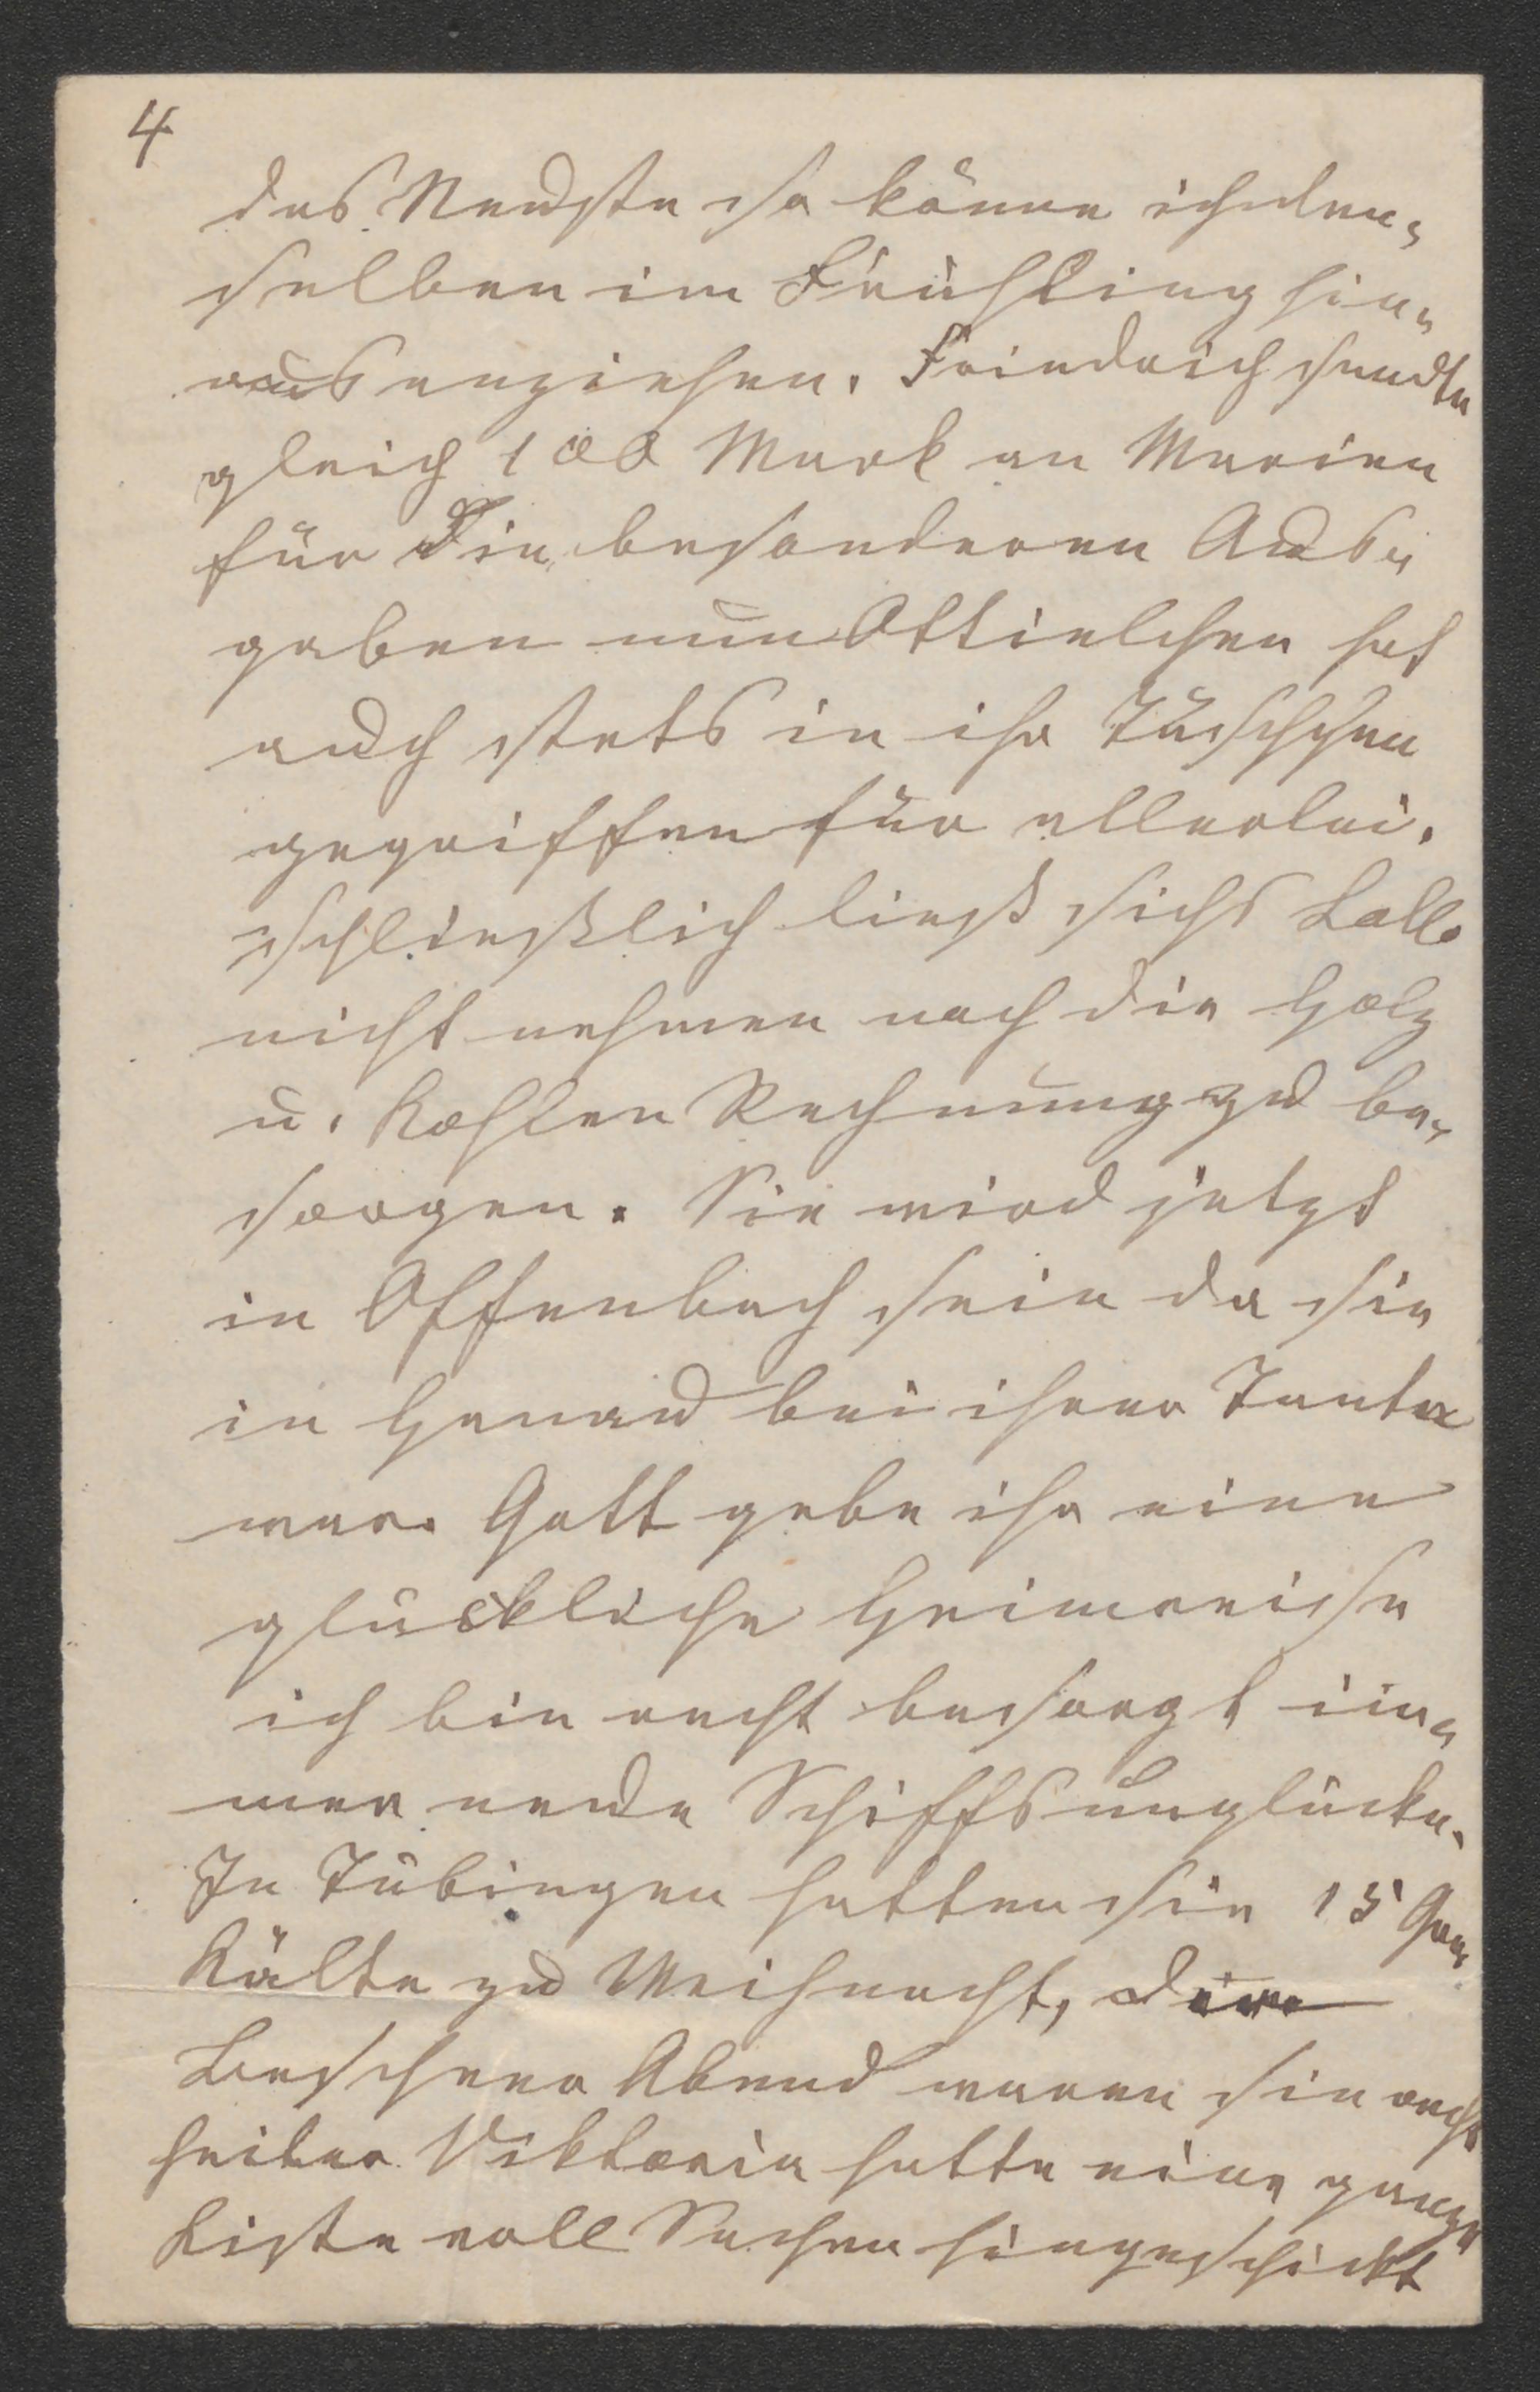 4
das Neuste so könne ich den-
selben im Frühling hin-
aus anziehen. Friedrich sandte
gleich 100 Mark an Marien
für die besonderen Aus-
gaben nun Ottielchen hat
auch stets in ihr Täschchen
gegriffen für allerlei.
schließlich ließ sichs Lolls
nicht nehmen noch die Holz
u. Kohlen Rechnung zu be-
sorgen. Sie wird jetzt
in Offenbach sein da sie
in Hanau bei ihrer Tante
war. Gott gebe ihr eine
glückliche Heimreise
ich bin recht besorgt im-
mer neue Schiffsunglücke.
In Tübingen hatten sie 15 Gra
Kälte zu Weihnacht,
Bescheer Abend waren sie recht
heiter Viktoria hatte eine ganze
Kiste voll Sachen hingeschickt